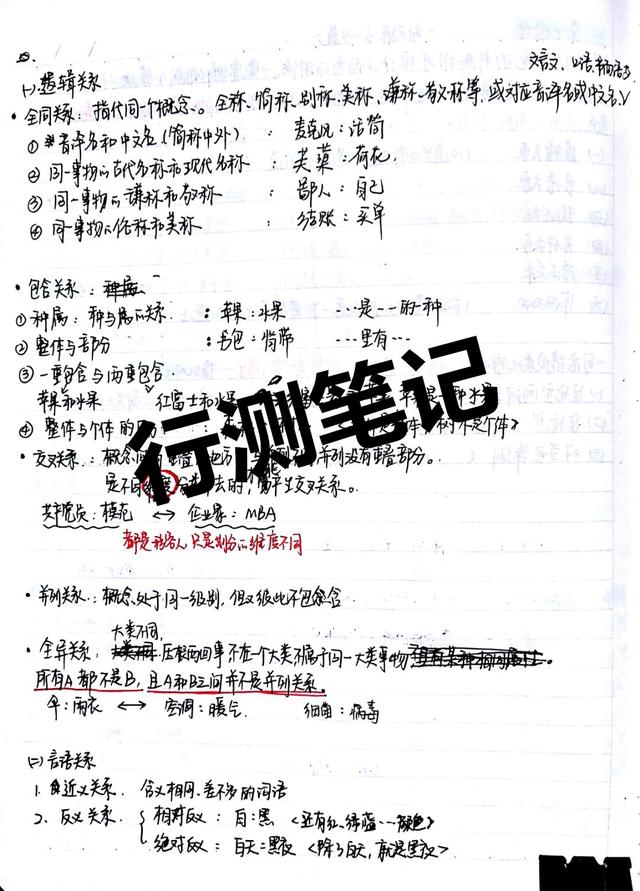 (一) 逻辑关系
文言文、口语书面语
· 全同关系:指代同一个概念。全称、简称、别称、美称、谦称、敬称等,或对应音译名或中文名
① 音译名和中文名(简称中外) 麦克风:话筒
② 同一事物的古代名称和现代名称 芙蕖:荷花
③ 同一事物的谦称和敬称 鄙人:自己
④ 同一事物的俗称和美称 结账:买单
· 包含关系:种属
① 种属:种与属的关系 :苹果:水果 …是…的一种
② 整体与部分 :书包:背带 …里有…
③ 一重包含与两重包含
苹果和水果 红富士和水果
④ 整体与个体的
行测笔记
· 交叉关系:概念间有重叠地方,没有重叠部分。
是不同维度 去的,属于交叉关系。
共产党员:模范 ↔ 企业家:MBA
都是 人 只是划分的维度不同
· 并列关系:概念处于同一级别,但又彼此不包含
大类不同,
· 全异关系:压根两回事 不在一个大类 不属于同一大类事物
所有A都不是B,且A和B之间并不是并列关系。
伞:雨衣 ↔ 空调:暖气 细菌:病毒
(二) 言语关系
1. 近义关系. 含义相同、差不多的词语
2. 反义关系. 相对反义:白:黑 <还有红、绿蓝…颜色>
绝对反义:白天:黑夜 <除了白天,就是黑夜>